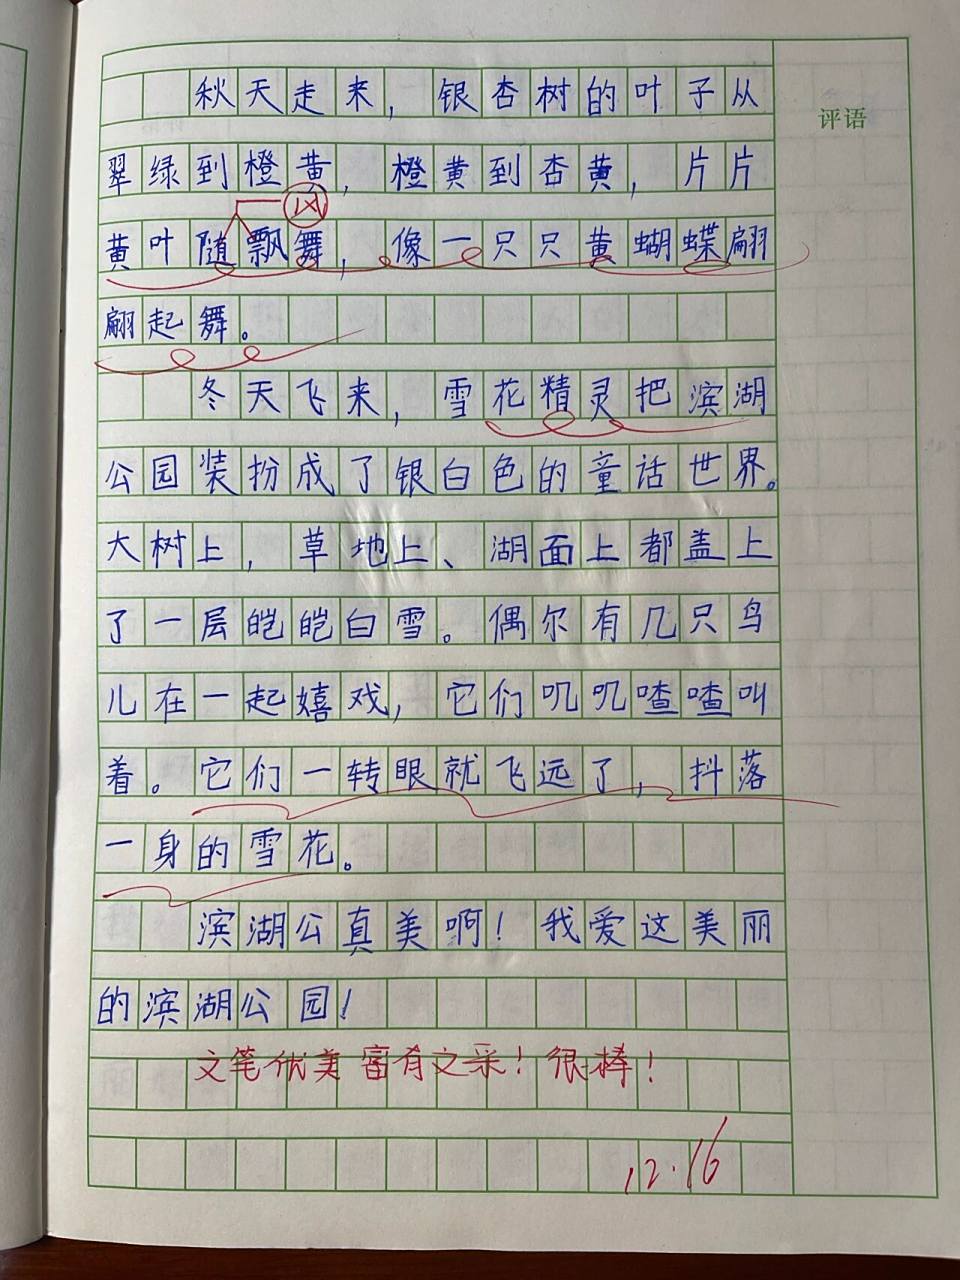 评语
秋天走来，银杏树的叶子从
翠绿到橙黄，橙黄到杏黄，片片
风
黄叶随飘舞，像一只只黄蝴蝶翩
翩起舞。
冬天飞来，雪花精灵把滨湖
公园装扮成了银白色的童话世界。
大树上，草地上、湖面上都盖上
了一层皑皑白雪。偶尔有几只鸟
儿在一起嬉戏，它们叽叽喳喳叫
着。它们一转眼就飞远了，抖落
一身的雪花。
滨湖公真美啊！我爱这美丽
的滨湖公园！
文笔优美富有文采！很棒！
12.16